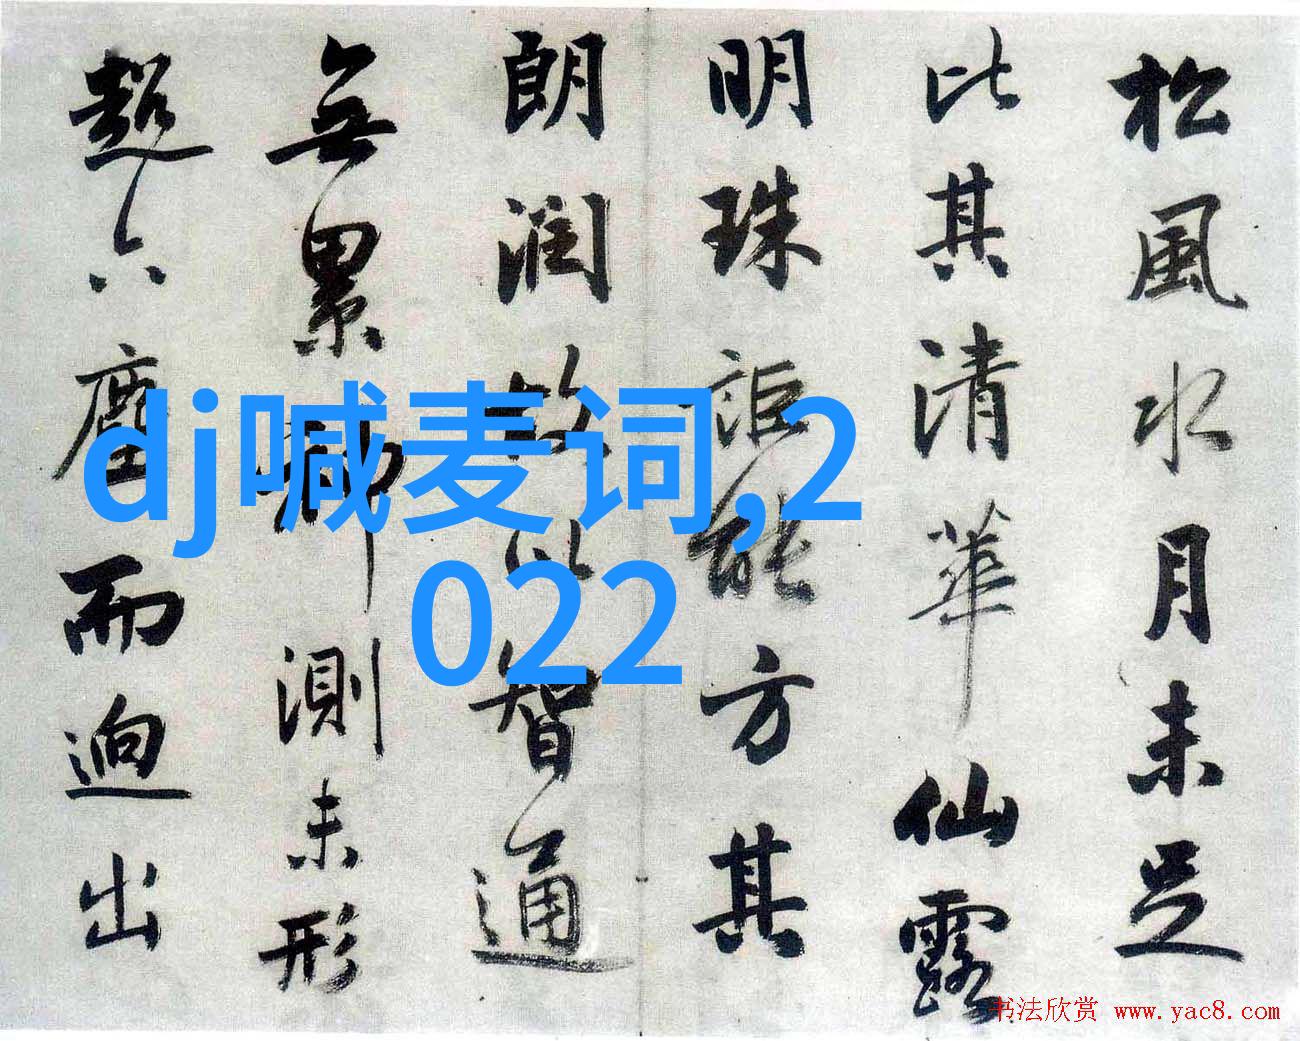 松風水月未足
比其清華仙露
明珠詎能方其
朗潤故以智通
無累神測未形
超六塵而迥出
dj喊麦词,2
022
书法欣赏 www.yac8.com